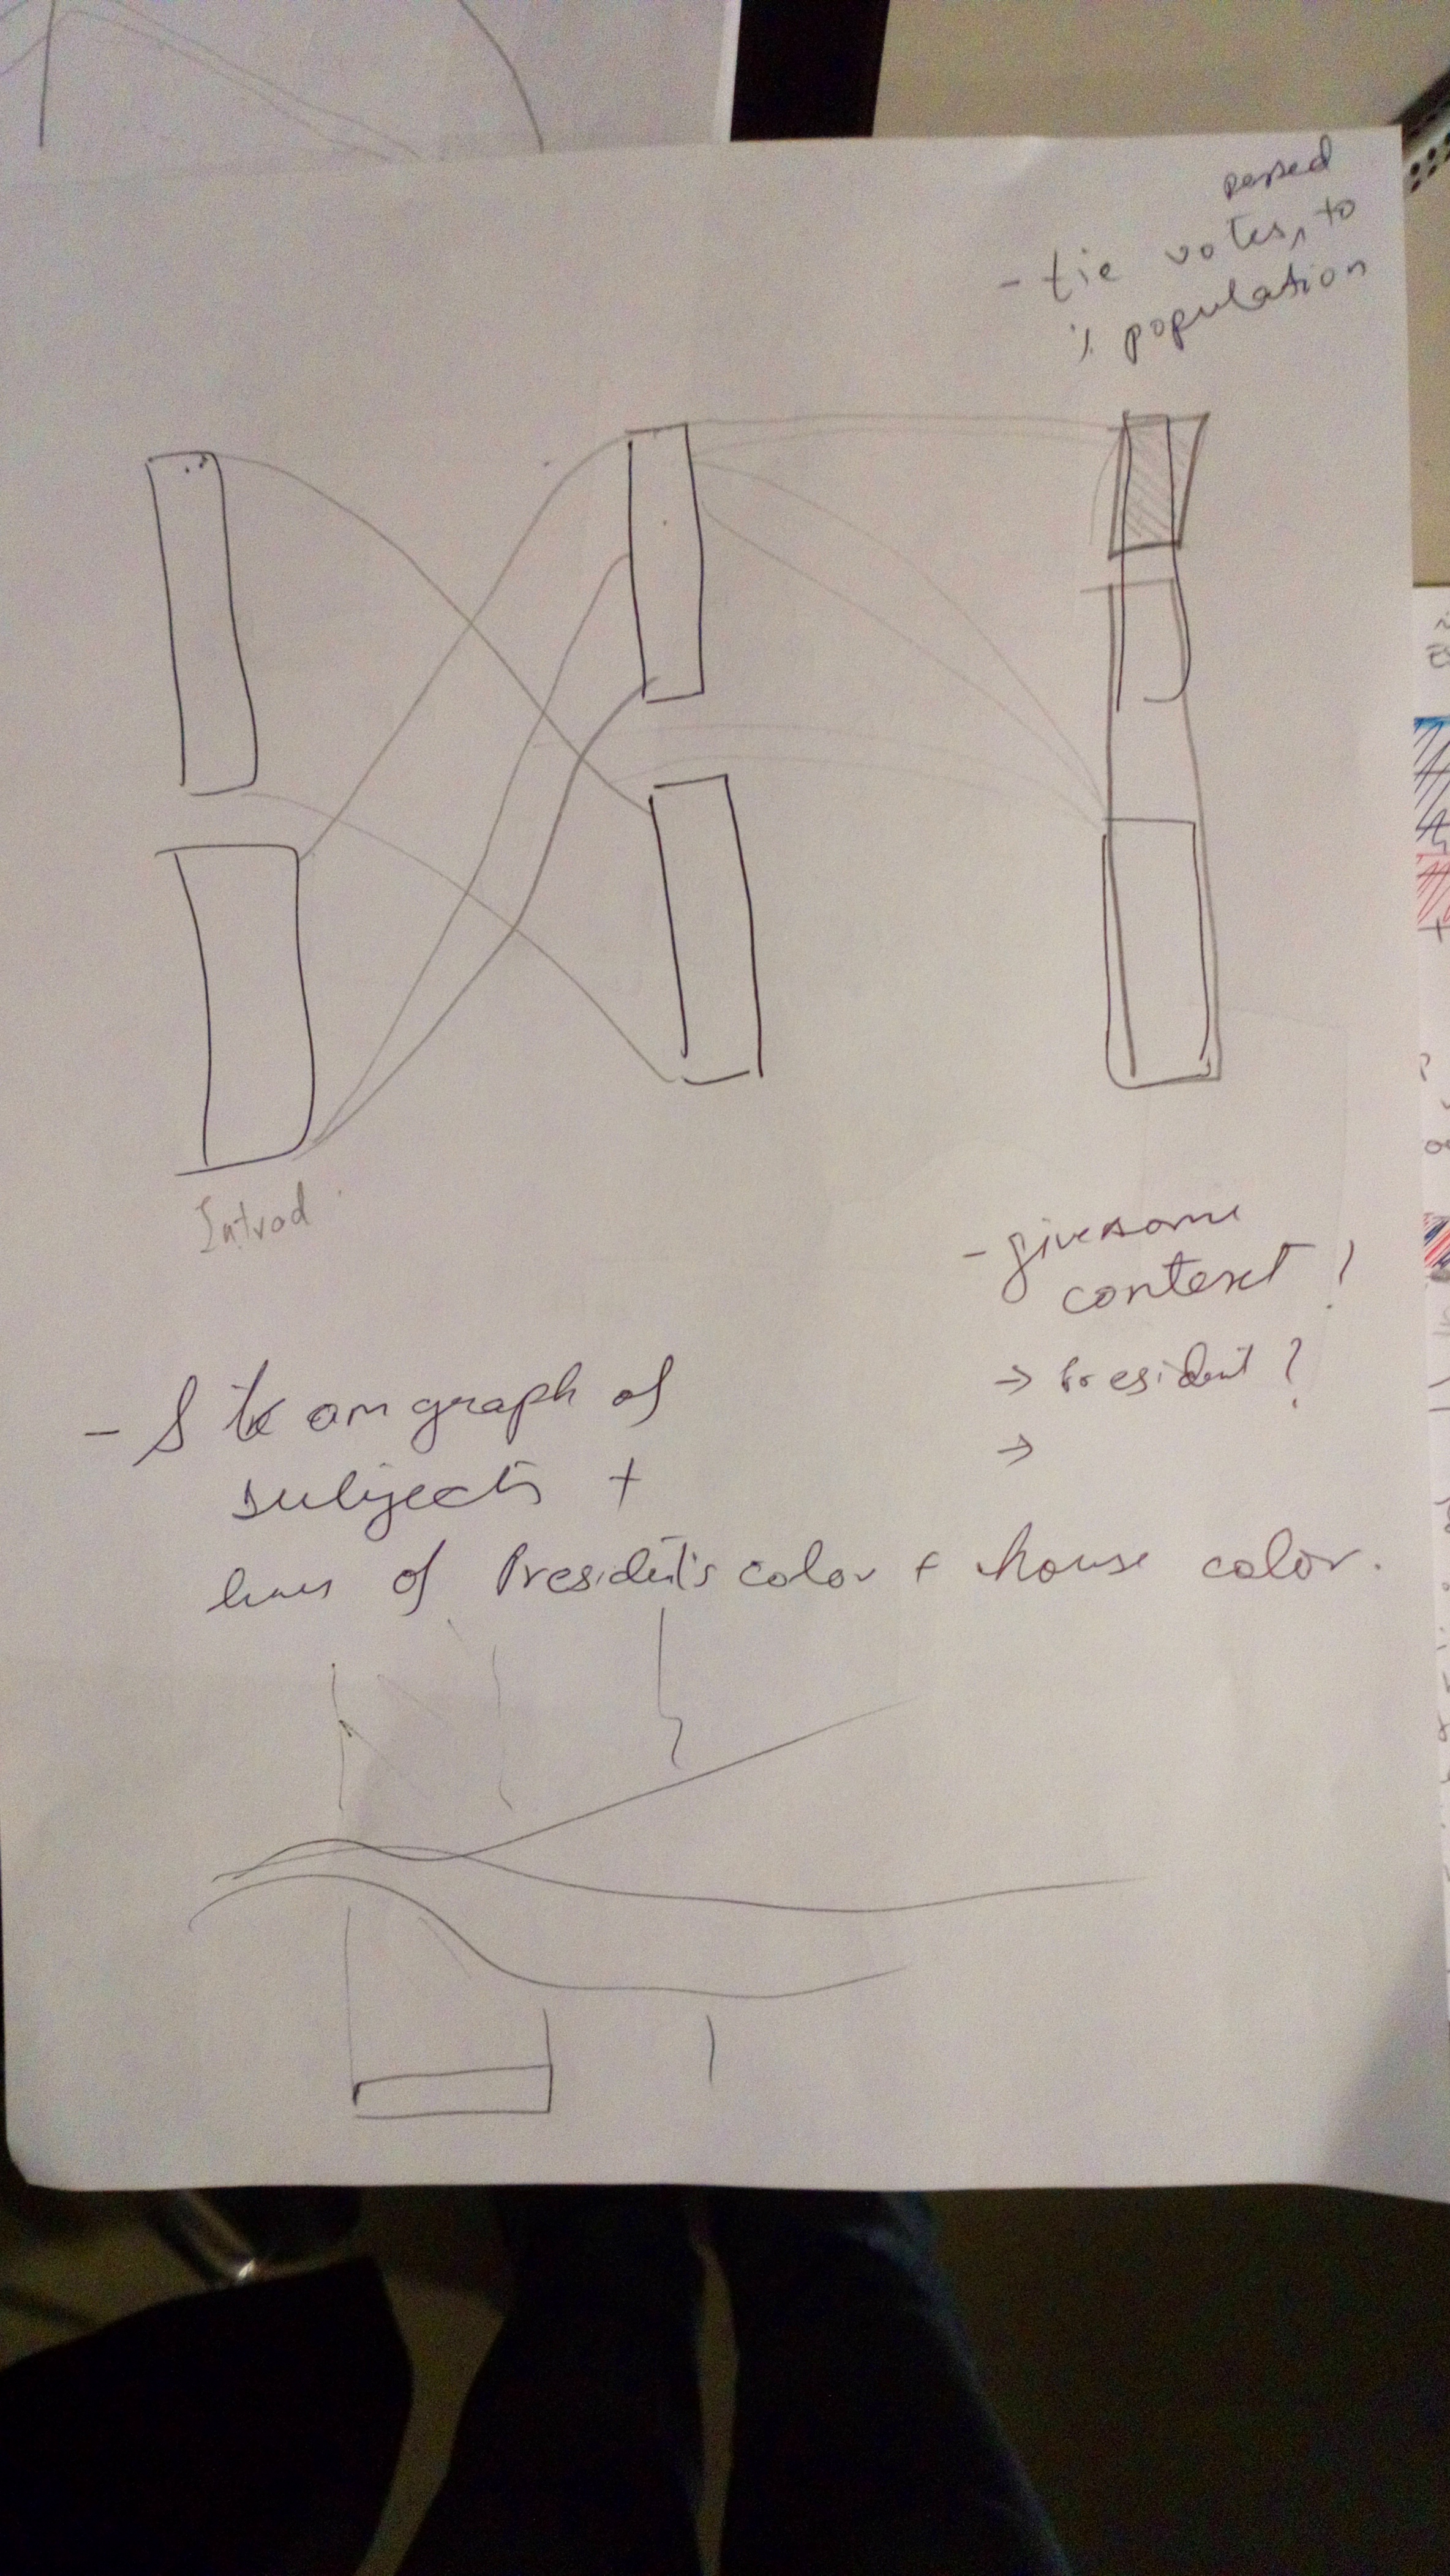 passed
- tie votes, to
% population
Introd
- give some
context !
→ President ?
→
- Steam graph of
subjects +
lines of President's color + house color.